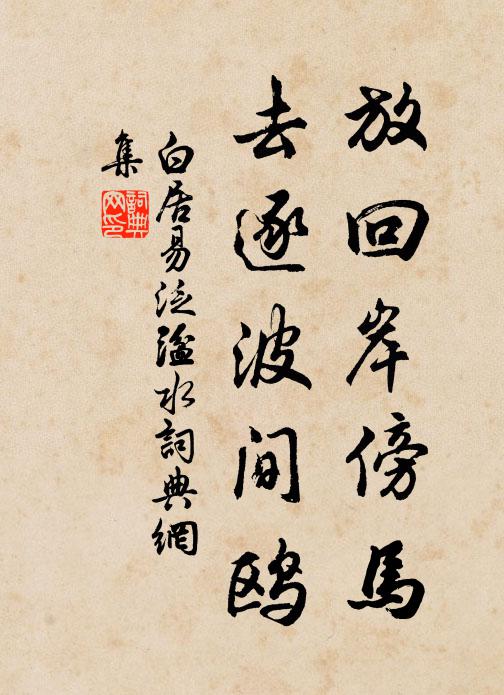 放回岸傍馬
去逐波間鸥
白居易泛湓水詞典網
集
詞典
网印